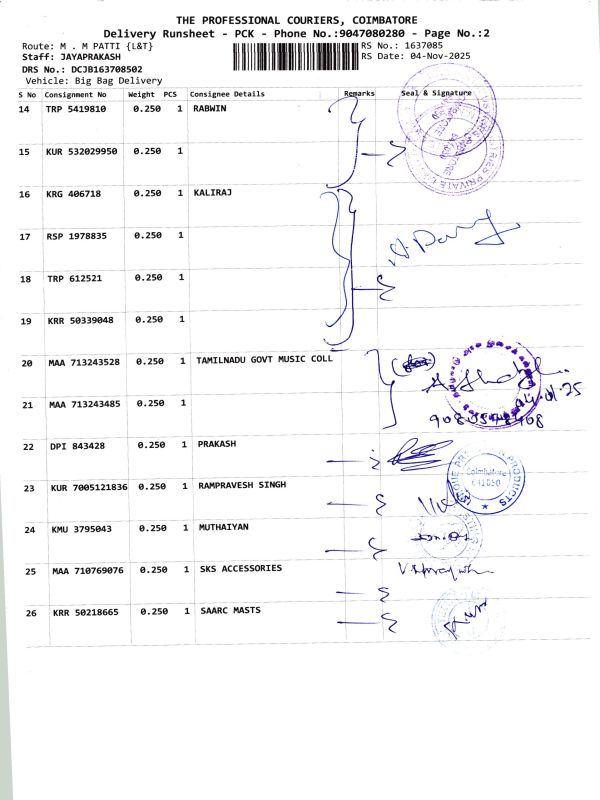 THE PROFESSIONAL COURIERS, COIMBATORE
Delivery Runsheet - PCK - Phone No.:9047080280 - Page No.:2
Route: M . M PATTI {L&T} RS No.: 1637085
Staff: JAYAPRAKASH RS Date: 04-Nov-2025
DRS No.: DCJB163708502
Vehicle: Big Bag Delivery
S No Consignment No Weight PCS Consignee Details Remarks Seal & Signature
14 TRP 5419810 0.250 1 RABWIN
15 KUR 532029950 0.250 1
16 KRG 406718 0.250 1 KALIRAJ
17 RSP 1978835 0.250 1
18 TRP 612521 0.250 1
19 KRR 50339048 0.250 1
20 MAA 713243528 0.250 1 TAMILNADU GOVT MUSIC COLL
21 MAA 713243485 0.250 1
22 DPI 843428 0.250 1 PRAKASH
23 KUR 7005121836 0.250 1 RAMPRAVESH SINGH
Coimbatore
24 KMU 3795043 0.250 1 MUTHAIYAN
25 MAA 710769076 0.250 1 SKS ACCESSORIES
26 KRR 50218665 0.250 1 SAARC MASTS